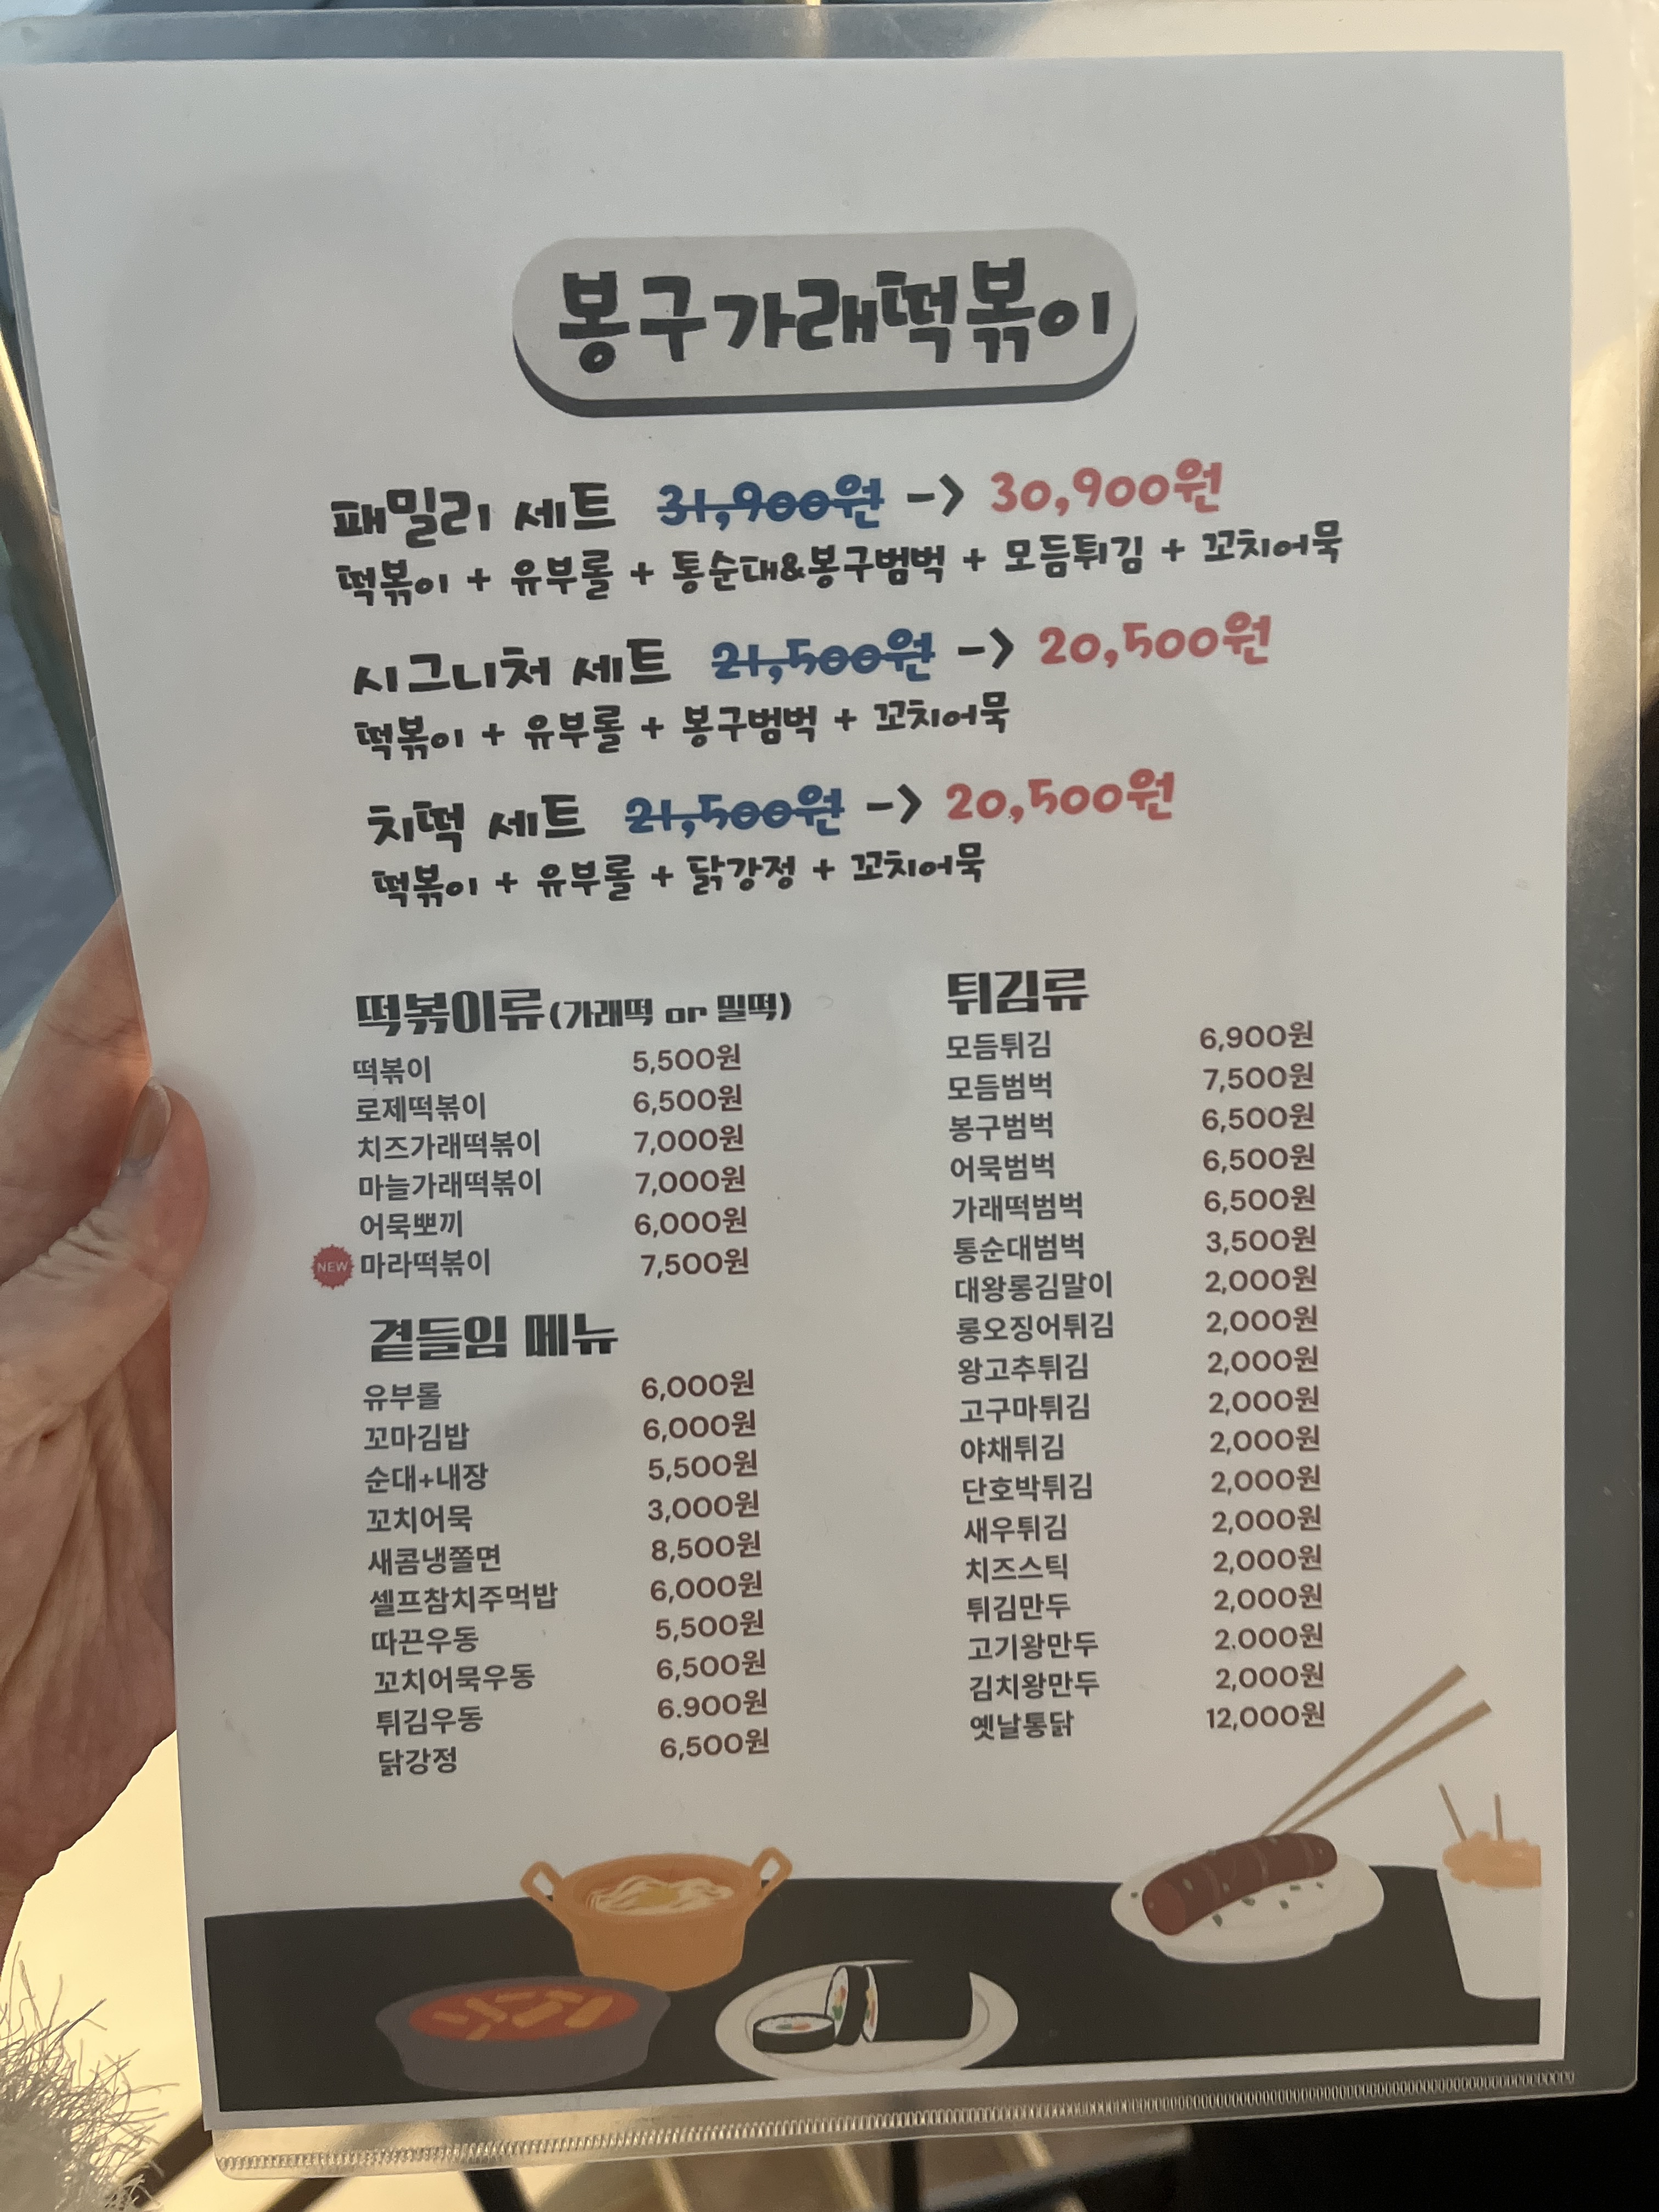 봉구가래떡볶이
패밀리 세트 31,900원 -> 30,900원
떡볶이 + 유부롤 + 통순대&봉구범벅 + 모듬튀김 + 꼬치어묵
시그니처 세트 21,500원 -> 20,500원
떡볶이 + 유부롤 + 봉구범벅 + 꼬치어묵
치떡 세트 21,500원 -> 20,500원
떡볶이 + 유부롤 + 닭강정 + 꼬치어묵
떡볶이류(가래떡 or 밀떡)
떡볶이 5,500원
로제떡볶이 6,500원
치즈가래떡볶이 7,000원
마늘가래떡볶이 7,000원
어묵뽀끼 6,000원
NEW 마라떡볶이 7,500원
곁들임 메뉴
유부롤 6,000원
꼬마김밥 6,000원
순대+내장 5,500원
꼬치어묵 3,000원
새콤냉쫄면 8,500원
셀프참치주먹밥 6,000원
따끈우동 5,500원
꼬치어묵우동 6,500원
튀김우동 6.900원
닭강정 6,500원
튀김류
모듬튀김 6,900원
모듬범벅 7,500원
봉구범벅 6,500원
어묵범벅 6,500원
가래떡범벅 6,500원
통순대범벅 3,500원
대왕롱김말이 2,000원
롱오징어튀김 2,000원
왕고추튀김 2,000원
고구마튀김 2,000원
야채튀김 2,000원
단호박튀김 2,000원
새우튀김 2,000원
치즈스틱 2,000원
튀김만두 2,000원
고기왕만두 2.000원
김치왕만두 2,000원
옛날통닭 12,000원